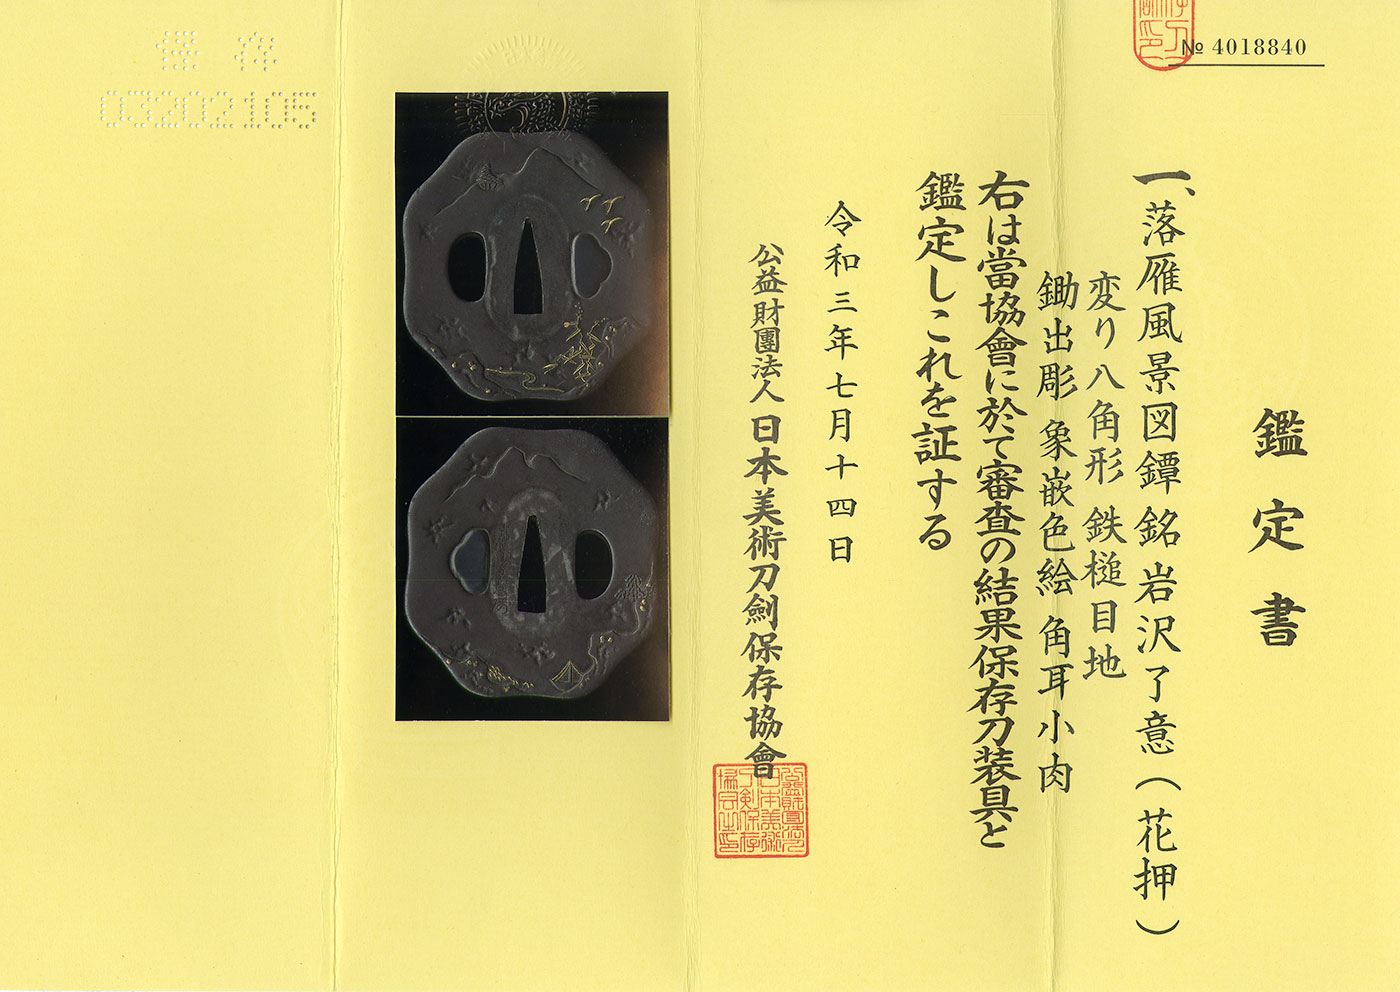 № 4018840
鑑定書
一、落雁風景図鐔 銘 岩沢了意（花押）
変り八角形 鉄槌目地
鋤出彫 象嵌色絵 角耳小肉
右は當協會に於て審査の結果保存刀装具と
鑑定しこれを証する
令和三年七月十四日
公益財團法人 日本美術刀劍保存協會
保存
03202105